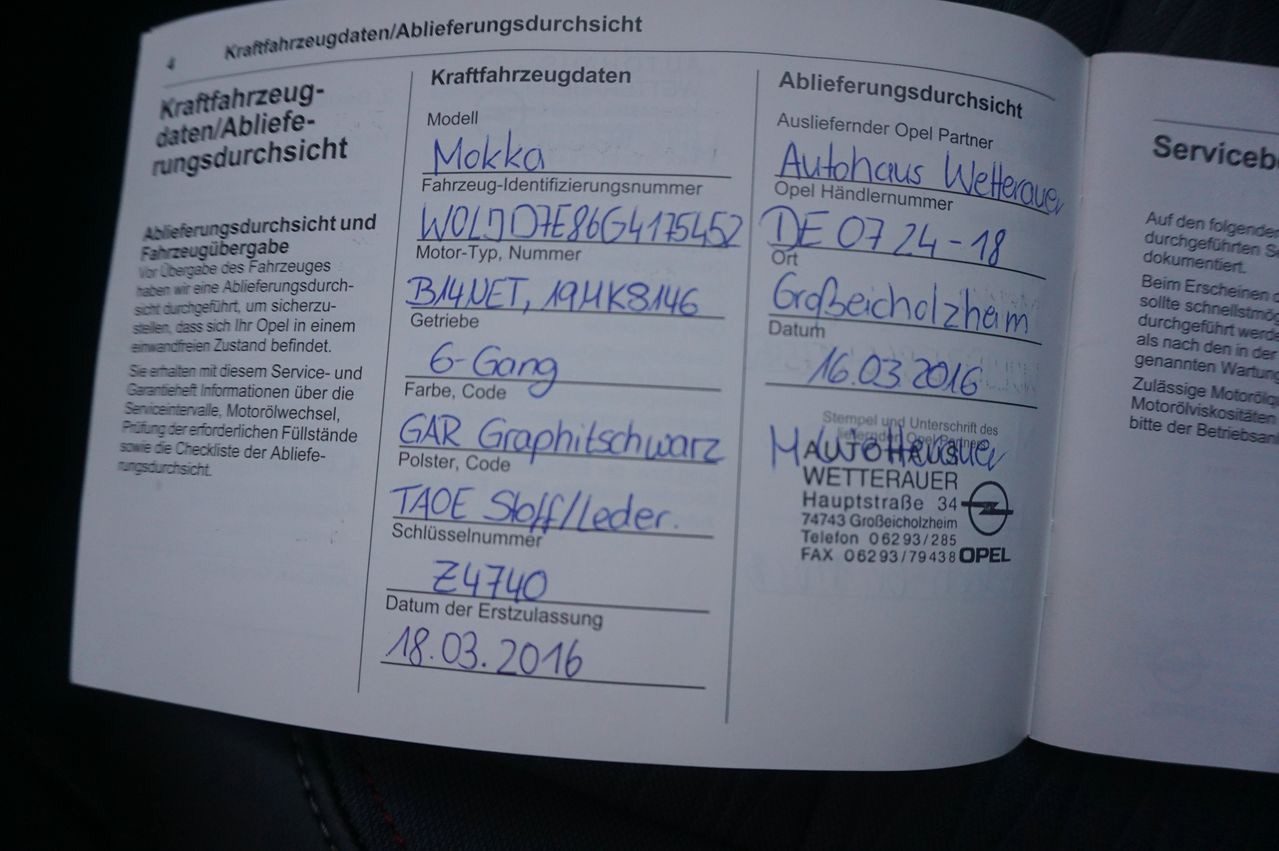 4
Kraftfahrzeugdaten/Ablieferungsdurchsicht
Kraftfahrzeug-
daten/Abliefe-
rungsdurchsicht
Ablieferungsdurchsicht und
Fahrzeugübergabe
Vor Übergabe des Fahrzeuges
haben wir eine Ablieferungsdurch-
sicht durchgeführt, um sicherzu-
stellen, dass sich Ihr Opel in einem
einwandfreien Zustand befindet.
Sie erhalten mit diesem Service- und
Garantieheft Informationen über die
Serviceintervalle, Motorölwechsel,
Prüfung der erforderlichen Füllstände
sowie die Checkliste der Abliefe-
rungsdurchsicht.
Kraftfahrzeugdaten
Modell
Mokka
Fahrzeug-Identifizierungsnummer
W0LJD7E86G4175452
Motor-Typ, Nummer
B14NET, 19MK8146
Getriebe
6-Gang
Farbe, Code
GAR Graphitschwarz
Polster, Code
TAOE Stoff/Leder.
Schlüsselnummer
Z4740
Datum der Erstzulassung
18.03.2016
Ablieferungsdurchsicht
Ausliefernder Opel Partner
Autohaus Wetterauer
Opel Händlernummer
DE 07 24-18
Ort
Großeicholzheim
Datum
16.03.2016
Stempel und Unterschrift des
liefernden Opel Partners
AUTOHAUS
WETTERAUER
Hauptstraße 34
74743 Großeicholzheim
Telefon 06293/285
FAX 06293/79438 OPEL
Serviceb
Auf den folgenden
durchgeführten Se
dokumentiert.
Beim Erscheinen d
sollte schnellstmög
durchgeführt werde
als nach den in der
genannten Wartung
Zulässige Motorölqu
Motorölviskositäten
bitte der Betriebsan